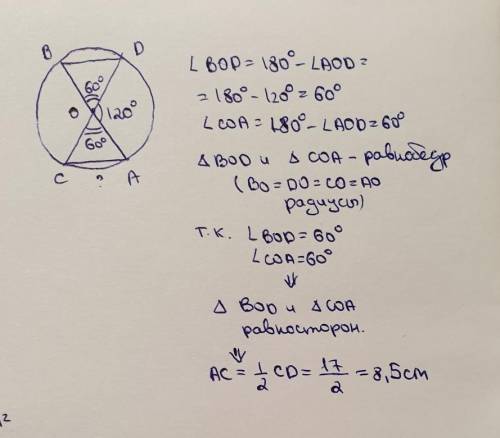 B D
60°
O 120°
60°
C ? A
∠BOD = 180° - ∠AOD =
= 180° - 120° = 60°
∠COA = 180° - ∠AOD = 60°
Δ BOD и Δ COA - равнобедр
(BO = DO = CO = AO
радиусы)
т.к. ∠BOD = 60°
∠COA = 60°
⇓
Δ BOD и Δ COA
равносторон.
⇓
AC = 1/2 CD = 17/2 = 8,5см